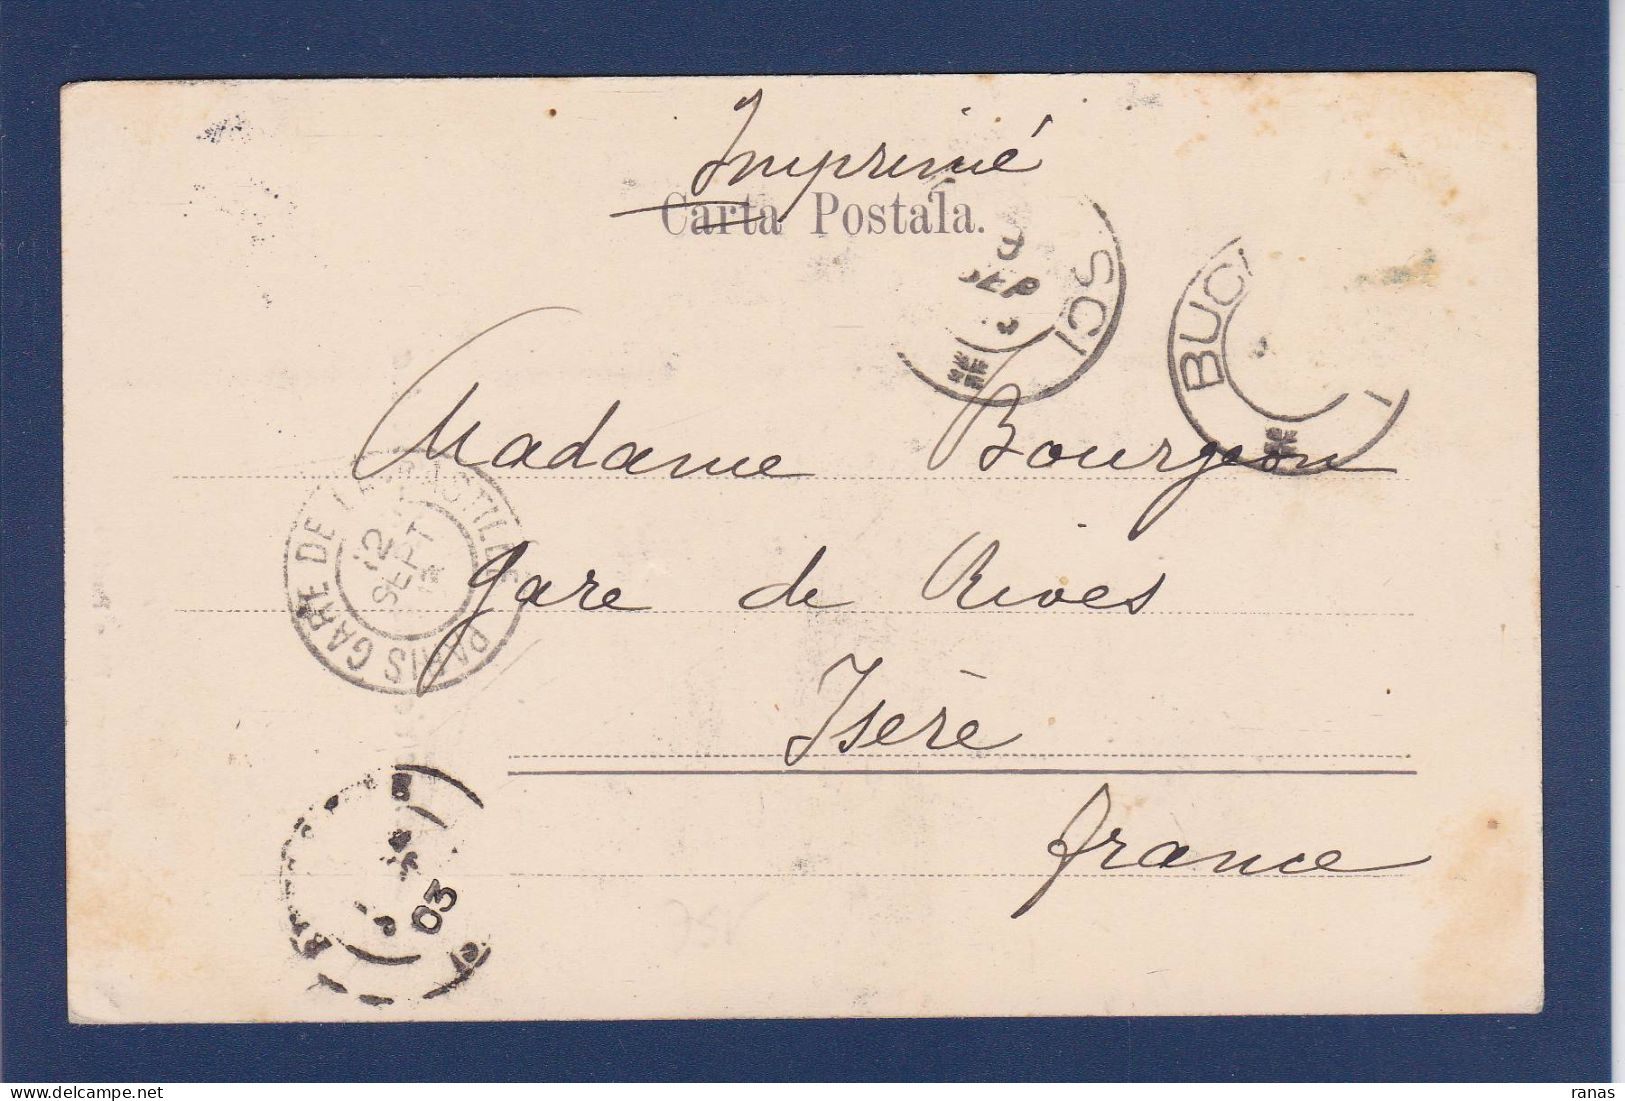 Imprimé
Carta Postala.
9
SEP
SCI
BUC
Madame Bourgeon
Gare de Rives
Isère
france
PARIS GARE DE LE BASTILLE
12
SEPT
03
ranas